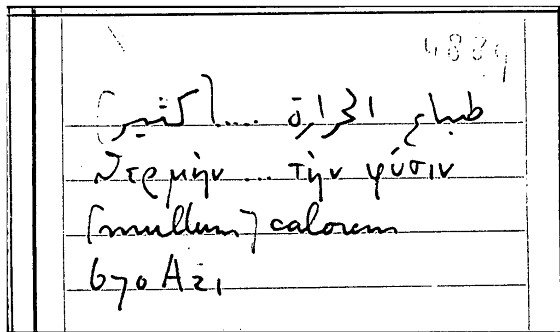 4889
طباع الحرارة .... [كثير]
θερμὴν ... τὴν φύσιν
[multum] calorem
670 A21